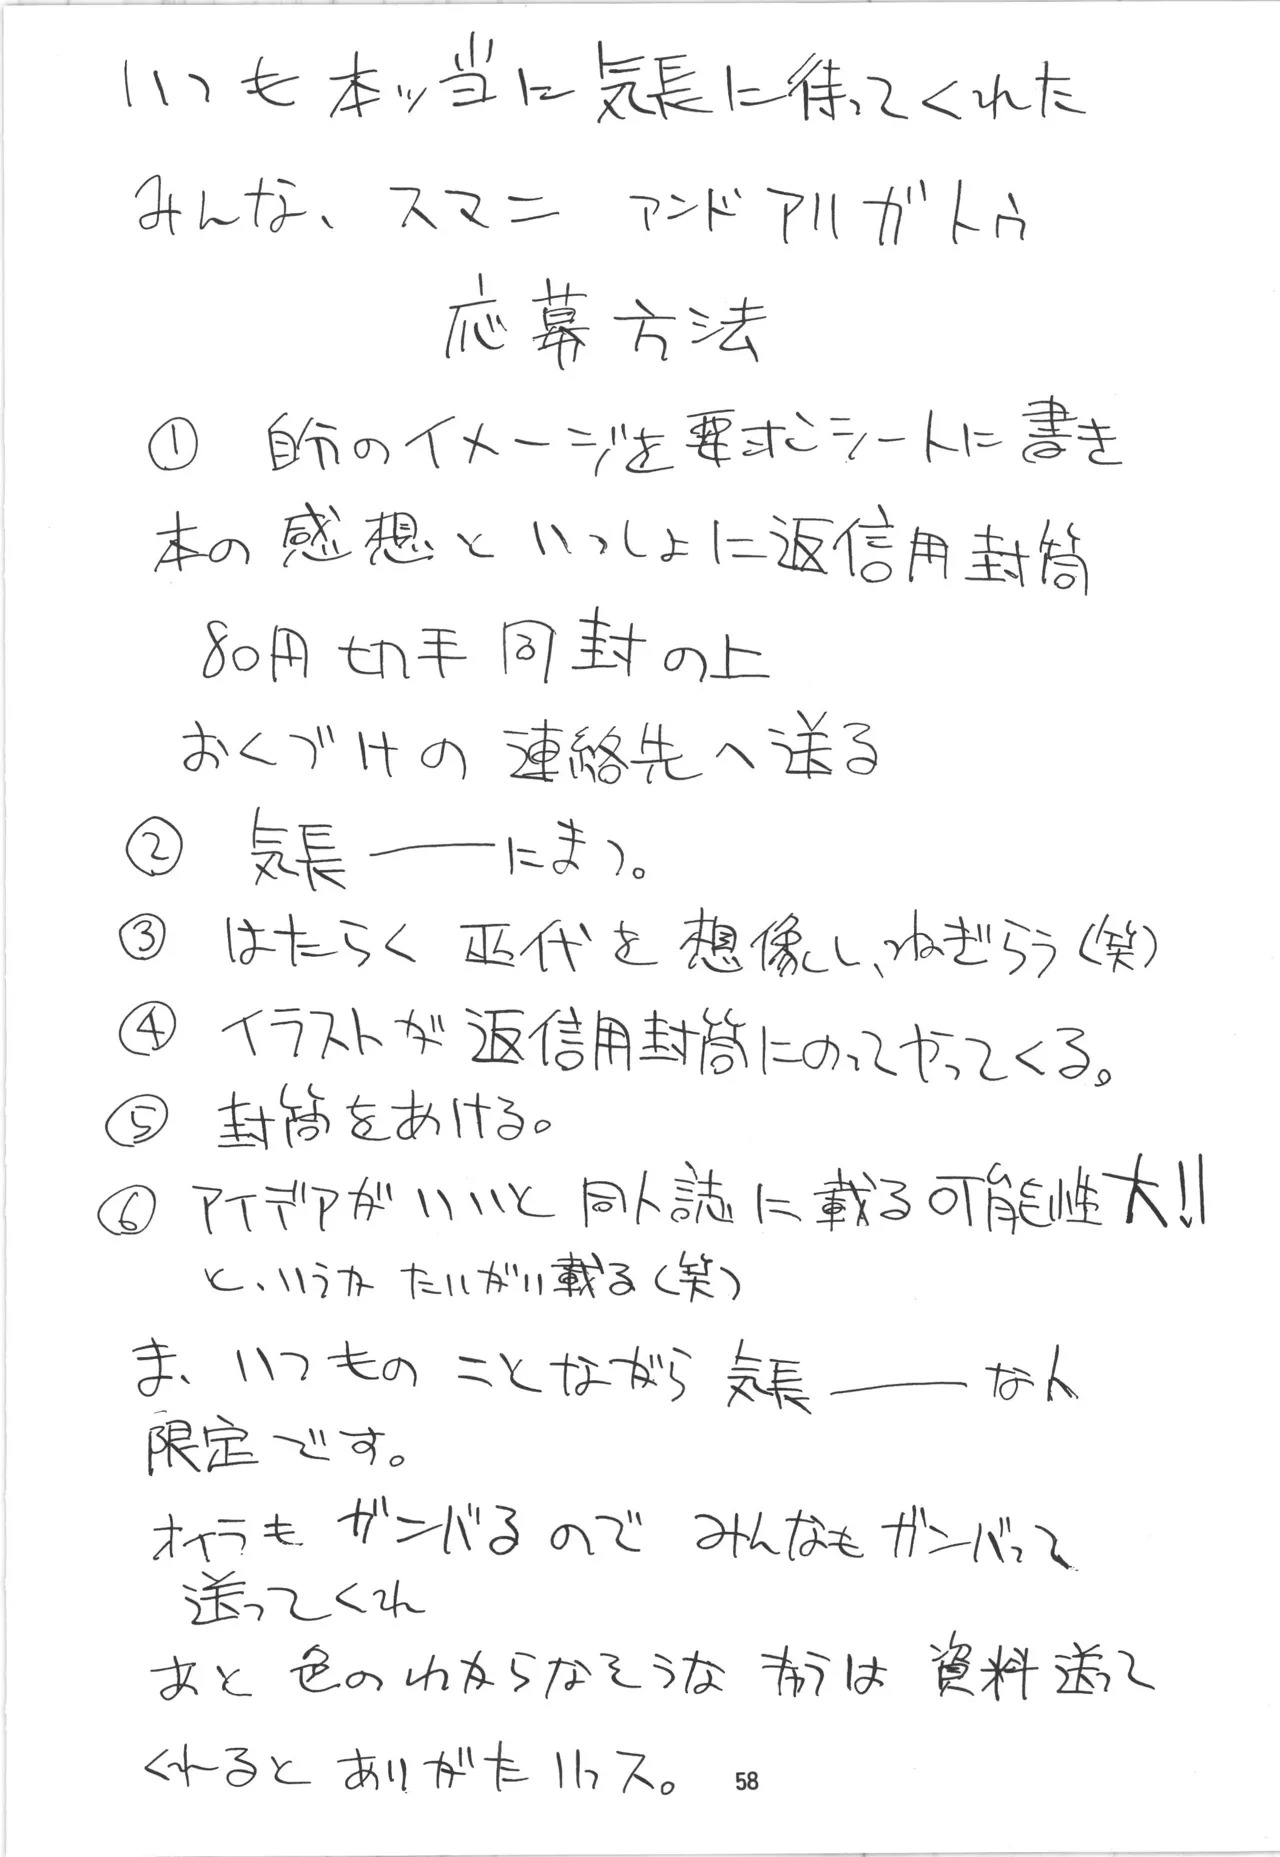 いつも本ッ当に気長に待ってくれた
みんな、スマニ アンドアリガトゥ
応募方法
① 自分のイメージを要求シートに書き
本の感想といっしょに返信用封筒
80円切手同封の上
おくづけの連絡先へ送る
② 気長――にまつ。
③ はたらく 正代を想像し、ねぎらう(笑)
④ イラストが返信用封筒にのってやってくる。
⑤ 封筒をあける。
⑥ アイデアがいいと同人誌に載る可能性大!!
と、いうか たいがい載る(笑)
ま、いつものことながら気長――な人
限定です。
オイラもガンバるのでみんなもガンバって
送ってくれ
あと色のわからなそうなキャラは資料送って
くれるとありがたいっス。
58